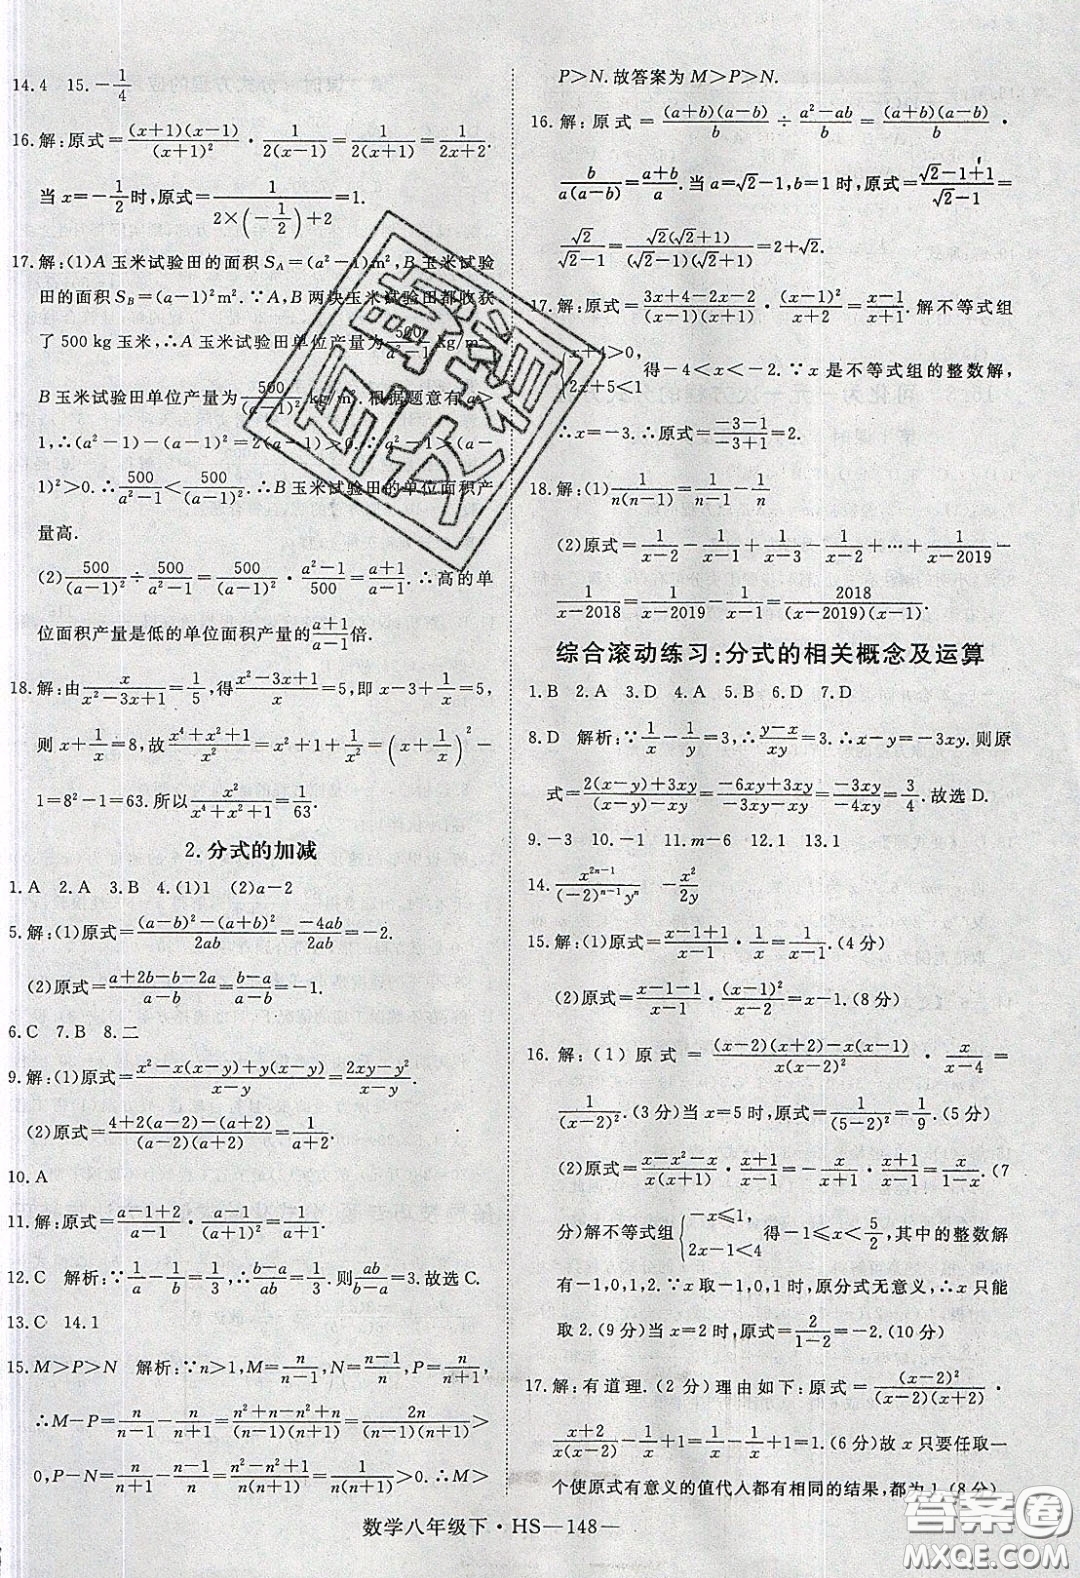 14.4　15.-1/4
16.解:原式=(x+1)(x-1)/(x+1)²·1/2(x-1)=1/2(x+1)=1/(2x+2).
当 x=-1/2时,原式=1/(2×(-1/2)+2)=1.
17.解:(1)A 玉米试验田的面积 S_A=(a²-1)m²,B 玉米试验
田的面积 S_B=(a-1)²m².∵A,B 两块玉米试验田都收获
了 500 kg 玉米,∴A 玉米试验田单位产量为500/(a²-1) kg/m²,
B 玉米试验田单位产量为500/(a-1)² kg/m².根据题意有 a>
1,∴(a²-1)-(a-1)²=2(a-1)>0.∴(a²-1)>(a-
1)²>0.∴500/(a²-1)<500/(a-1)².∴B 玉米试验田的单位面积产
量高.
(2)500/(a-1)²÷500/(a²-1)=500/(a-1)²·(a²-1)/500=(a+1)/(a-1).∴高的单
位面积产量是低的单位面积产量的(a+1)/(a-1)倍.
18.解:由x/(x²-3x+1)=1/5,得(x²-3x+1)/x=5,即 x-3+1/x=5,
则 x+1/x=8,故(x⁴+x²+1)/x²=x²+1+1/x²=(x+1/x)²-
1=8²-1=63.所以x²/(x⁴+x²+1)=1/63.
2.分式的加减
1.A　2.A　3.B　4.(1)1　(2)a-2
5.解:(1)原式=((a-b)²-(a+b)²)/2ab=-4ab/2ab=-2.
(2)原式=(a+2b-b-2a)/(a-b)=(b-a)/(a-b)=-1.
6.C　7.B　8.二
9.解:(1)原式=(x²-x(x-y)+y(x-y))/(x-y)=(2xy-y²)/(x-y).
(2)原式=(4+2(a-2)-(a+2))/((a-2)(a+2))=1/(a+2).
10.A
11.解:原式=(a-1+2)/(a-1)·(a-1)/(a+1)²=1/(a+1).
12.C　解析:∵1/a-1/b=1/3,∴(b-a)/ab=1/3.则ab/(b-a)=3.故选 C.
13.C　14.1
15.M>P>N　解析:∵n>1,M=n/(n-1),N=(n-1)/n,P=n/(n+1),
∴M-P=n/(n-1)-n/(n+1)=(n²+n-n²+n)/((n-1)(n+1))=2n/((n-1)(n+1))>
0,P-N=n/(n+1)-(n-1)/n=(n²-n²+1)/(n(n+1))=1/(n(n+1))>0.∴M>
P>N.故答案为 M>P>N.
16.解:原式=(a+b)(a-b)/b÷(a²-ab)/b=(a+b)(a-b)/b·
b/(a(a-b))=(a+b)/a.当 a=√2-1,b=1 时,原式=(√2-1+1)/(√2-1)=
√2/(√2-1)=√2(√2+1)/((√2-1)(√2+1))=2+√2.
17.解:原式=(3x+4-2x-2)/((x-1)(x+1))·(x-1)²/(x+2)=(x-1)/(x+1).解不等式组
{x+4>0, 2x+5<1 得-4<x<-2.∵x 是不等式组的整数解,
∴x=-3.∴原式=(-3-1)/(-3+1)=2.
18.解:(1)1/(n(n-1))=1/(n-1)-1/n
(2)原式=1/(x-2)-1/(x-1)+1/(x-3)-1/(x-2)+…+1/(x-2019)-
1/(x-2018)=1/(x-2019)-1/(x-1)=2018/((x-2019)(x-1)).
综合滚动练习:分式的相关概念及运算
1.B　2.A　3.D　4.A　5.B　6.D　7.D
8.D　解析:∵1/x-1/y=3,∴(y-x)/xy=3.∴x-y=-3xy.则原
式=(2(x-y)+3xy)/((x-y)-xy)=(-6xy+3xy)/(-3xy-xy)=-3xy/-4xy=3/4.故选 D.
9.-3　10.-1　11.m-6　12.1　13.1
14.x²ⁿ⁻¹/((-2)ⁿ⁻¹yⁿ)　-x²/2y
15.解:(1)原式=(x-1+1)/(x-1)·1/x=1/(x-1).(4 分)
(2)原式=(x-1-1)/(x-1)·(x-1)²/(x-2)=x-1.(8 分)
16.解:(1)原式=((x-2)(x+2)-x(x-1))/(x(x-2)²)·x/(x-4)=
1/(x-2)².(3 分)当 x=5 时,原式=1/(5-2)²=1/9.(5 分)
(2)原式=(x-x²-x)/(x(x+1))·(x+1)/(x-1)=-x/(x+1)·(x+1)/(x-1)=-x/(x-1).(7
分)解不等式组{-x≤1, 2x-1<4 得-1≤x<5/2,其中的整数解
有-1,0,1,2.∵x 取-1,0,1 时,原分式无意义,∴x 只能
取 2.(9 分)当 x=2 时,原式=2/(1-2)=-2.(10 分)
17.解:有道理.(2 分)理由如下:原式=(x-2)²/((x-2)(x+2))·
(x+2)/(x(x-2))+(x-1)/x=1/x+(x-1)/x=1.(6 分)故 x 只要任取一
个使原式有意义的值代人都有相同的结果,都为 1.(8 分)
数学八年级下·HS—148—
答案圈
MXQE.COM